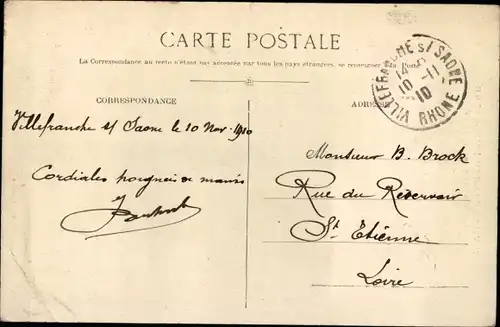 CARTE POSTALE
La Correspondance au recto n'étant pas acceptée par tous les pays étrangers, se renseigner à la Poste
CORRESPONDANCE
ADRESSE
VILLEFRANCHE S/ SAONE
14
10 - 11
10
RHONE
Villefranche s/ Saone le 10 Nov. 1910
Cordiales poignées de mains
Monsieur B. Brock
Rue du Réservoir
St Etienne
Loire